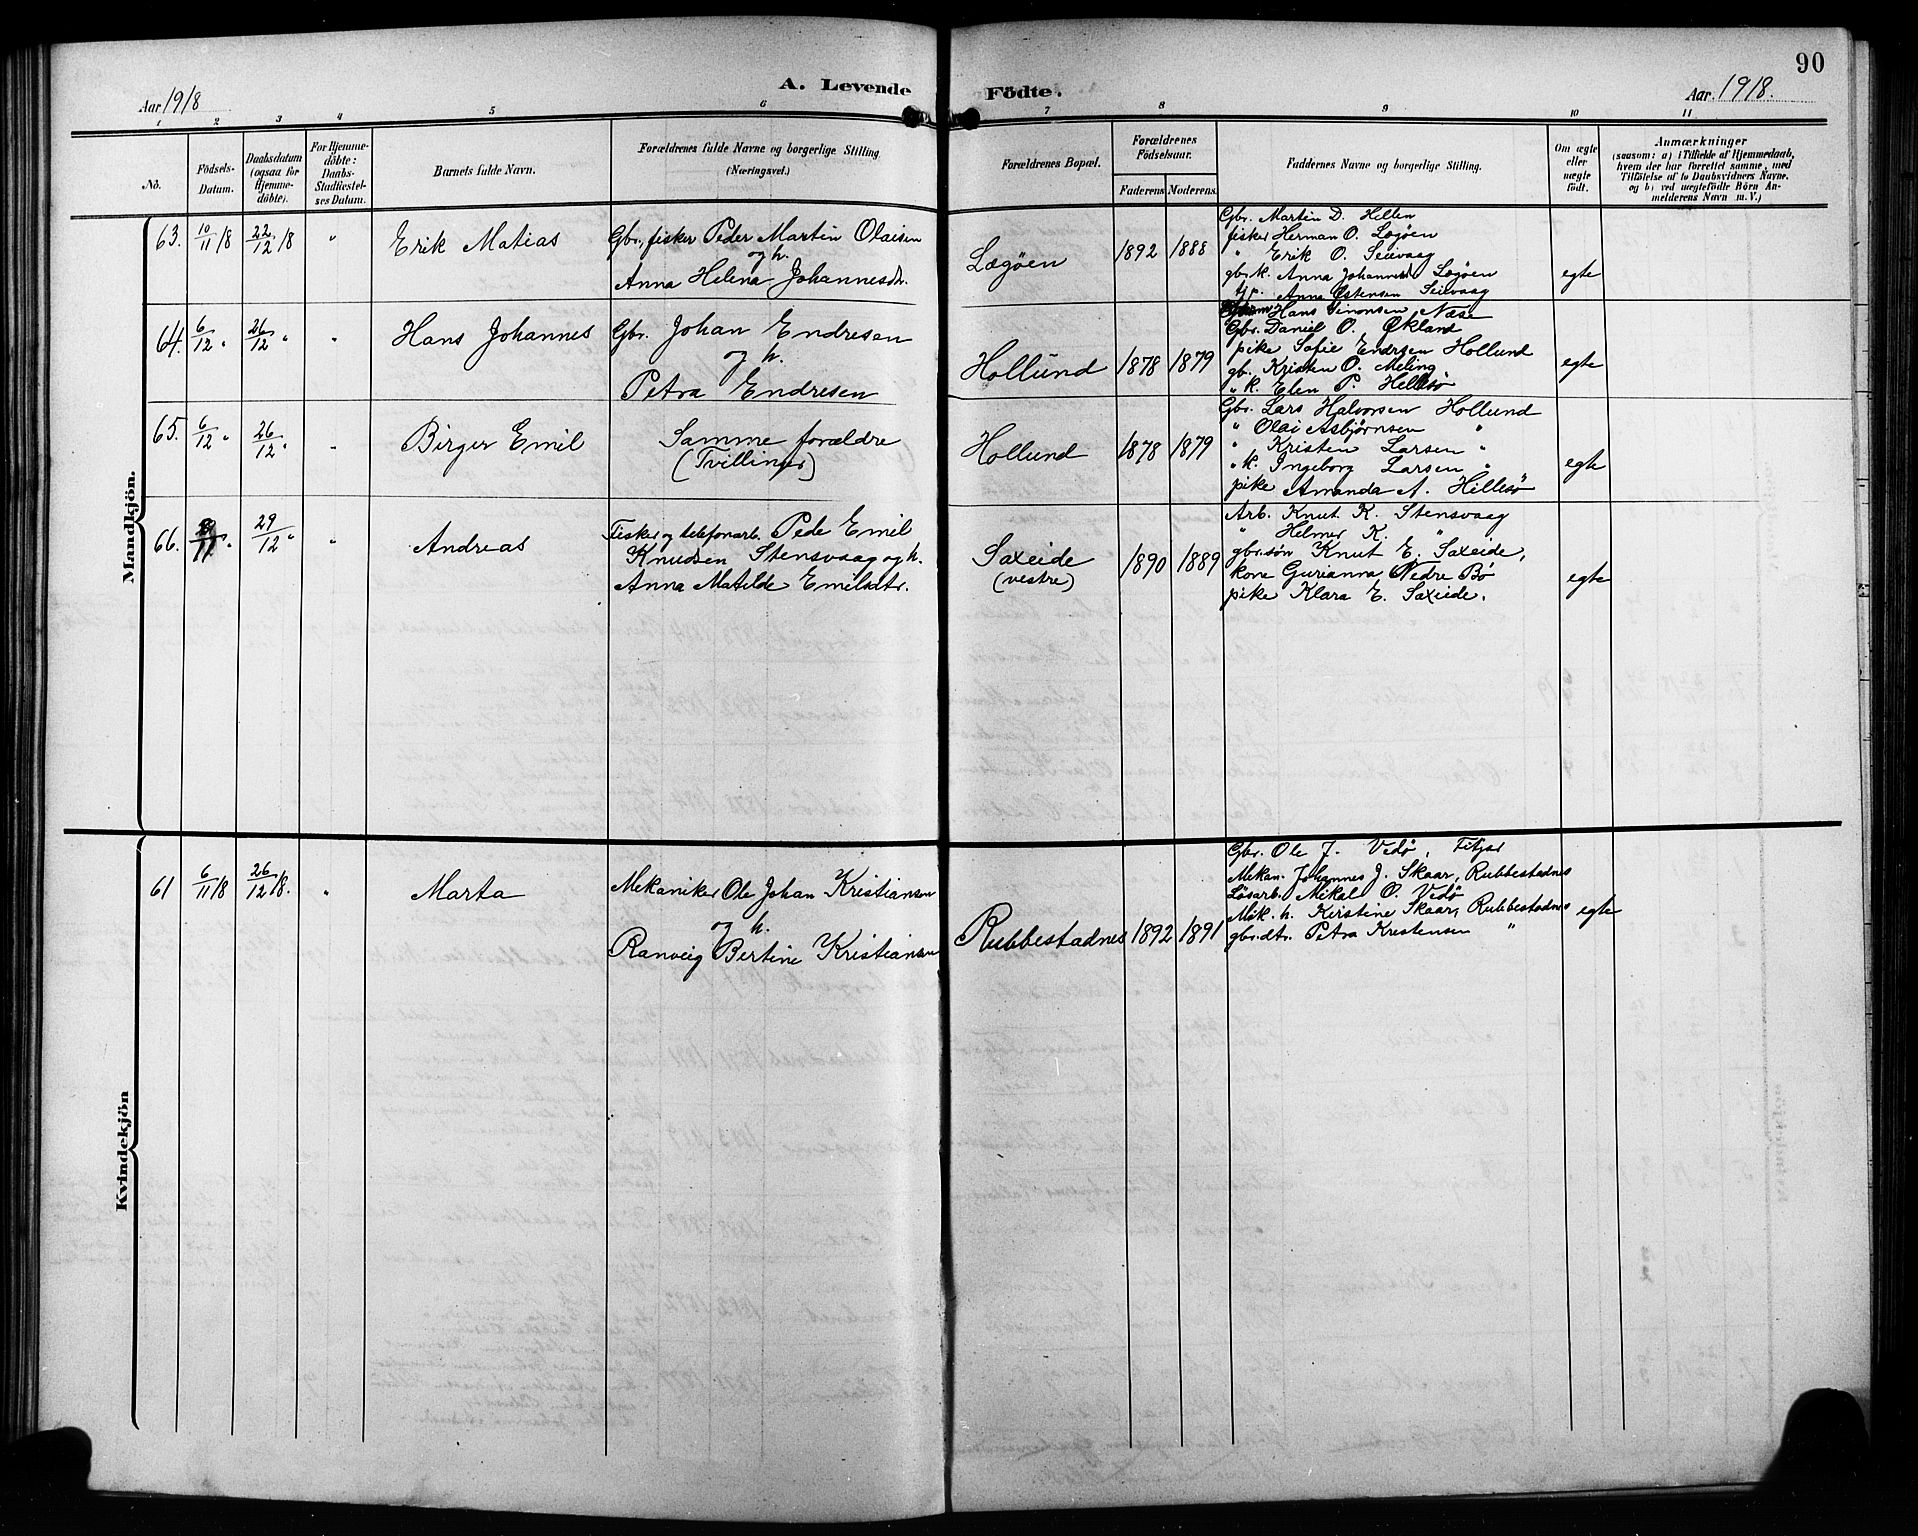 90
A. Levende Födte.
Aar 1918
Aar 1918.
1 2 3 4 5 6 7 8 9 10 11
No.
Födsels-Datum.
Daabsdatum (ogsaa for Hjemme-döbte).
For Hjemme-döbte: Daabs-Stadfæstel-ses Datum.
Barnets fulde Navn.
Forældrenes fulde Navne og borgerlige Stilling (Næringsvei.)
Forældrenes Bopæl.
Forældrenes Födselsaar.
Faderens
Moderens.
Faddernes Navne og borgerlige Stilling.
Om ægte eller uægte födt.
Anmærkninger
(saasom: a) i Tilfælde af Hjemmedaab,
hvem der har forrettet samme, med
Tilföielse af to Daabsvidners Navne,
og b) ved uægtefödte Börn An-
melderens Navn m. V.)
Mandkjön.
63. 10/11 18 22/12 18 " Erik Matias
Gbr. fisker Peder Martin Olaisen
og h.
Anna Helena Johannesdtr.
Lægøen 1892 1888
Gbr. Martin D. Hellen
fisker Herman O. Lægøen
" Erik O. Seievaag
gbr.k. Anna Johannesd. Lægøen
tjp. Anna Østensen Seievaag
egte
64. 6/12 " 26/12 " " Hans Johannes
Gbr. Johan Endresen
og h.
Petra Endresen
Hollund 1878 1879
Hans Simonsen Næse
Gbr. Daniel O. Økland
pike Sofie Endresen Hollund
gb. Kristen O. Meling
" k. Elen P. Hellesø
egte
65. 6/12 " 26/12 " " Birger Emil
Samme forældre
(Tvillinger)
Hollund 1878 1879
Gbr. Lars Halvorsen Hollund
" Olai Asbjørnsen "
" Kristen Larsen "
" k. Ingeborg Larsen "
pike Amanda A. Hillesø
egte
66. /11 " 29/12 " " Andreas
Fisker og telefonarb. Pede Emil
Knudsen Stensvaag og h.
Anna Matilde Emilsdtr.
Saxeide
(vestre)
1890 1889
Arb. Knut K. Stensvaag
" Helmer K. "
gbr.søn Knut E. Saxeide,
kone Gurianna Nedre Bø
pike Klara E. Saxeide.
egte
Kvindekjön
61 6/11 18 26/12 18. " Marta
Mekaniker Ole Johan Kristiansen
og h.
Ranveig Bertine Kristiansen
Rubbestadnes 1892 1891
Gbr. Ole J. Vedø, Fitjar
Mekan. Johannes J. Skaar, Rubbestadnes
Løsarb. Mikal O. Vedø
Mek. h. Kirstine Skaar, Rubbestadnes
gbr.dtr. Petra Kristensen "
egte